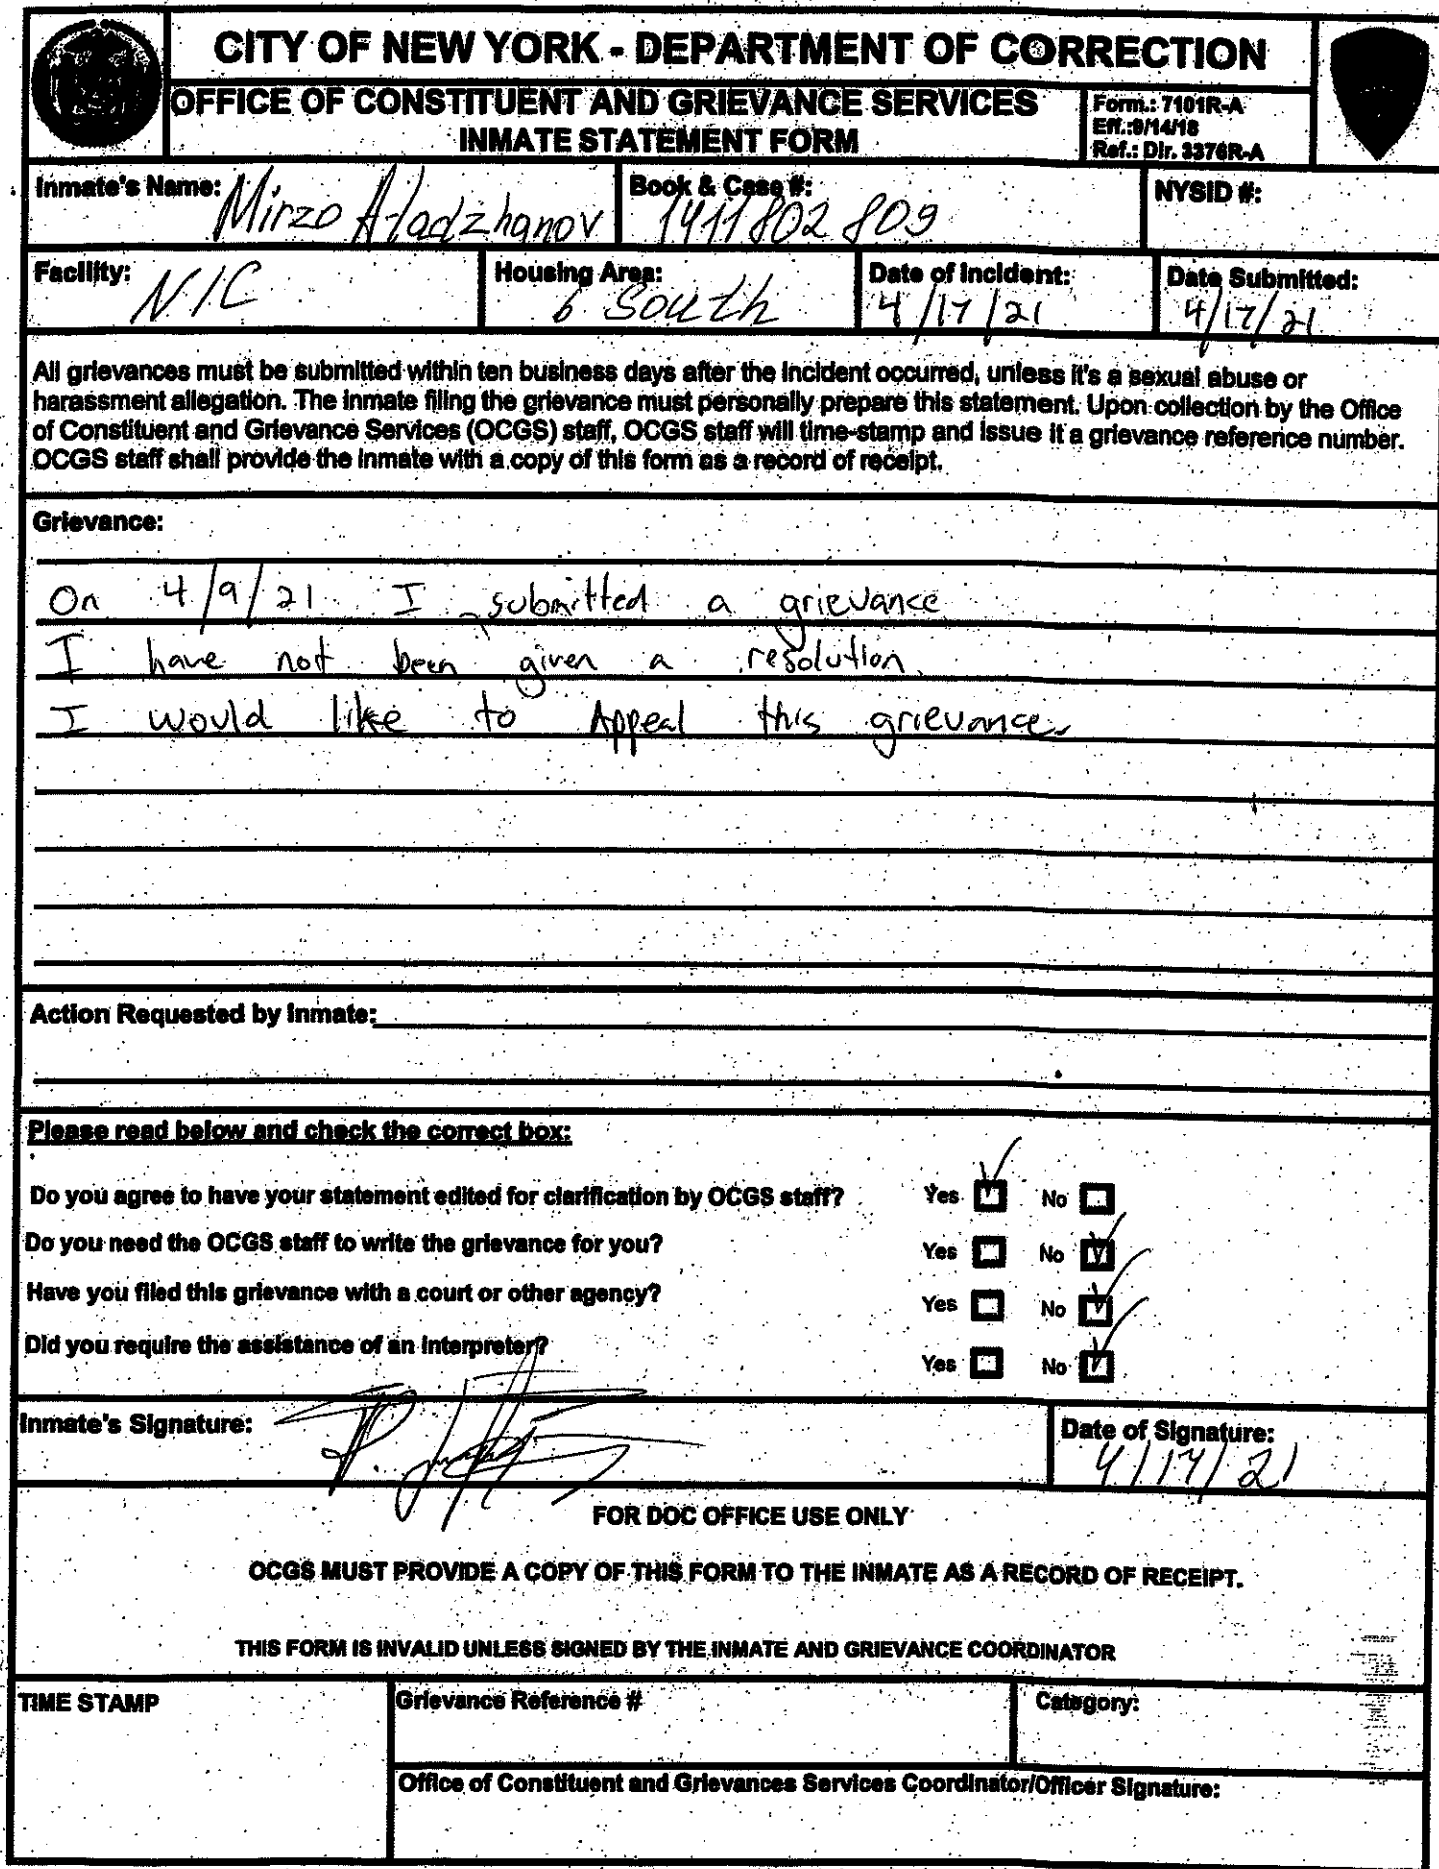 CITY OF NEW YORK - DEPARTMENT OF CORRECTION
OFFICE OF CONSTITUENT AND GRIEVANCE SERVICES
INMATE STATEMENT FORM
Form.: 7101R-A
Eff.:9/14/18
Ref.: Dir. 3376R-A
Inmate's Name: Mirzo Atadzhanov
Book & Case #: 1411802809
NYSID #:
Facility: NIC
Housing Area: 6 South
Date of Incident: 4/17/21
Date Submitted: 4/17/21
All grievances must be submitted within ten business days after the incident occurred, unless it's a sexual abuse or
harassment allegation. The inmate filing the grievance must personally prepare this statement. Upon collection by the Office
of Constituent and Grievance Services (OCGS) staff, OCGS staff will time-stamp and issue it a grievance reference number.
OCGS staff shall provide the inmate with a copy of this form as a record of receipt.
Grievance:
On 4/9/21 I submitted a grievance
I have not been given a resolution.
I would like to Appeal this grievance.
Action Requested by Inmate:
Please read below and check the correct box:
Do you agree to have your statement edited for clarification by OCGS staff? Yes No
Do you need the OCGS staff to write the grievance for you? Yes No
Have you filed this grievance with a court or other agency? Yes No
Did you require the assistance of an interpreter? Yes No
Inmate's Signature:
Date of Signature: 4/17/21
FOR DOC OFFICE USE ONLY
OCGS MUST PROVIDE A COPY OF THIS FORM TO THE INMATE AS A RECORD OF RECEIPT.
THIS FORM IS INVALID UNLESS SIGNED BY THE INMATE AND GRIEVANCE COORDINATOR
TIME STAMP
Grievance Reference #
Category:
Office of Constituent and Grievances Services Coordinator/Officer Signature: